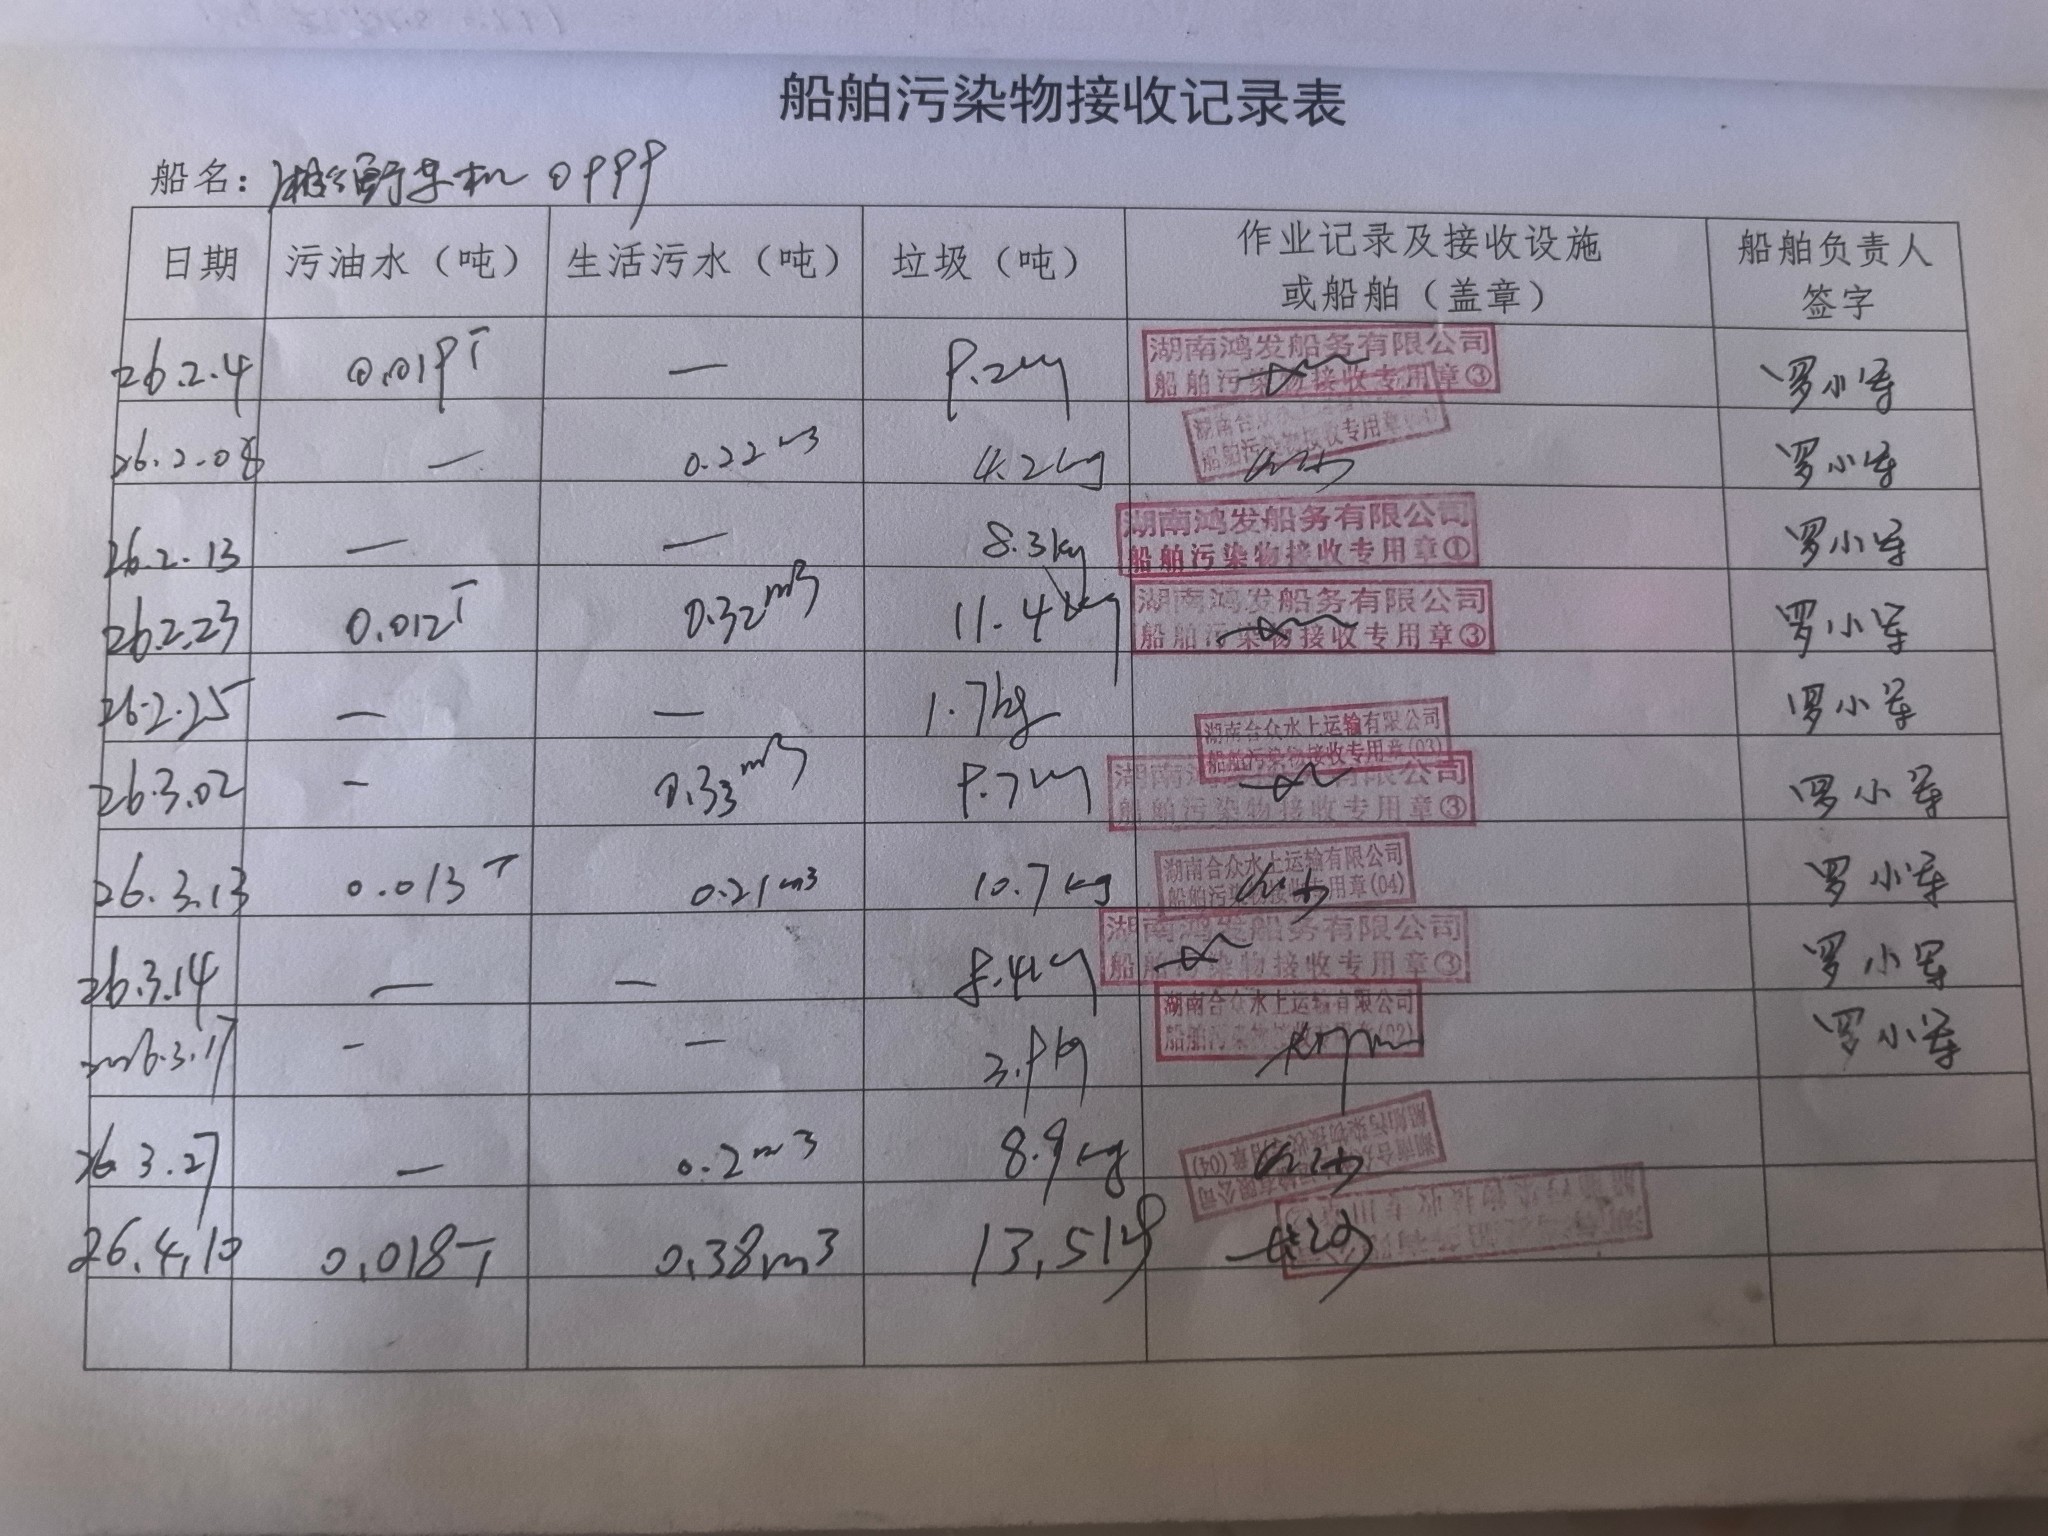 船舶污染物接收记录表
船名： 0999
日期 污油水（吨） 生活污水（吨） 垃圾（吨） 作业记录及接收设施或船舶（盖章） 船舶负责人签字
26.2.4 0.019T — 9.2kg 湖南鸿发船务有限公司 船舶污染物接收专用章③ 罗小军
26.2.08 — 0.22m3 4.2kg 湖南合众水上运 船舶污染物接收专用章 罗小军
26.2.13 — — 8.3kg 湖南鸿发船务有限公司 船舶污染物接收专用章① 罗小军
26.2.23 0.012T 0.32m3 11.4kg 湖南鸿发船务有限公司 船舶污染物接收专用章③ 罗小军
26.2.25 — — 1.7kg 湖南合众水上运输有限公司 船舶污染物接收专用章(03) 罗小军
26.3.02 - 0.33m3 9.7kg 湖南鸿发船务有限公司 船舶污染物接收专用章③ 罗小军
26.3.13 0.013T 0.21m3 10.7kg 湖南合众水上运输有限公司 船舶污染物接收专用章(04) 罗小军
26.3.14 — — 8.4kg 湖南鸿发船务有限公司 船舶污染物接收专用章③ 罗小军
26.3.17 - - 3.9kg 湖南合众水上运输有限公司 船舶污染物接收专用章(02) 罗小军
26.3.27 — 0.2m3 8.9kg 湖南合众水上运输有限公司 船舶污染物接收专用章(04)
26.4.10 0.018T 0.38m3 13.5kg